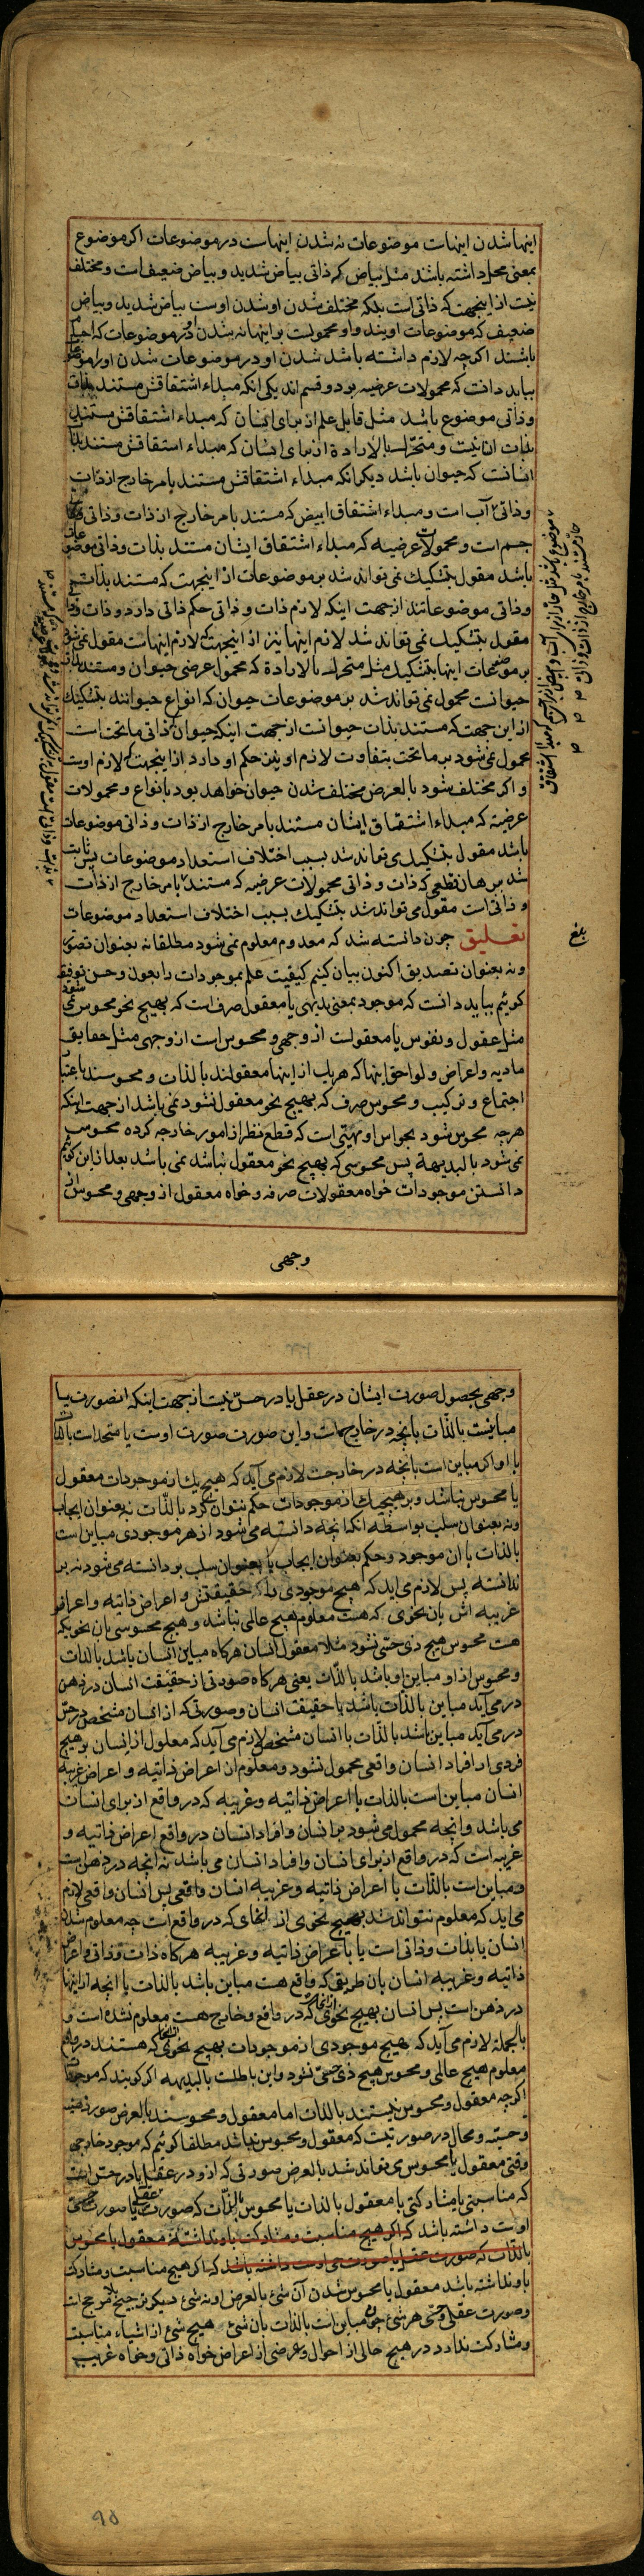 اینها شدن اینهات موضوعات نه شدن اینهاست در موضوعات اکر موضوع
بمعنی محل داشته باشد مثل بیاض که ذاتی بیاض شدید و بیاض ضعیف است و مختلف
نیست از اینجهت که ذاتی است بلکه مختلف شدن او شدن اوست بیاض شدید و بیاض
ضعیف که موضوعات اویند و او محمولست بر اینها نه شدن او در موضوعات که اجسام
باشند اکرچه لازم داشته باشد شدن او در موضوعات شدن او را موضوعات
بباید دانست که محمولات عرضیه بر دو قسم اند یکی انکه مبداء اشتقاقش مستند بذات
و ذاتی موضوع باشد مثل قابل علم از برای انسان که مبداء اشتقاقش مستند
بذات انسانیت و متحرک بالاراده از برای انسان که مبداء اشتقاقش مستند بذاتی
انسانست که حیوان باشد دیکر انکه مبداء اشتقاقش مستند بامر خارج از ذات
و ذاتی آب است و مبداء اشتقاق ابیض که مستند بامر خارج از ذات و ذاتی
جسم است و محمولات عرضیه که مبداء اشتقاق ایشان مستند بذات و ذاتی موضوعات
باشد مقول بتشکیک نمی تواند شد بر موضوعات از اینجهت که مستند بذات
و ذاتی موضوعاتند از جهت اینکه لازم ذات و ذاتی حکم ذاتی دارد و ذات و ذاتی
مقول بتشکیک نمی تواند شد لازم اینها نیز از اینجهت که لازم اینهاست مقول نمی شود
بر موضوعات اینها بتشکیک مثل متحرک بالاراده که محمول عرضی حیوان و مستند بذات
حیوانست محمول نمی تواند شد بر موضوعات حیوان که انواع حیوانند بتشکیک
از این جهت که مستند بذات حیوانست از جهت اینکه حیوان ذاتی ماتحت است
محمول نمی شود بر ماتحت بتفاوت لازم او نیز حکم او دارد از اینجهت که لازم اوست
و اکر مختلف شود بالعرض مختلف شدن حیوان خواهد بود بانواع و محمولات
عرضیه که مبداء اشتقاق ایشان مستند بامر خارج از ذات و ذاتی موضوعات
باشد مقول بتشکیک می تواند شد بسبب اختلاف استعداد موضوعات پس ثابت
شد ببرهان قطعی که ذات و ذاتی محمولات عرضیه که مستند بامر خارج از ذات
و ذاتی است مقول می تواند شد بتشکیک بسبب اختلاف استعداد موضوعات
تعلیق چون دانسته شد که معدوم معلوم نمی شود مطلقا نه بعنوان تصور
و نه بعنوان تصدیق اکنون بیان کنیم کیفیت علم بموجودات را بعون و حسن توفیقه
کوئیم بباید دانست که موجود بمعنی بدیهی یا معقول صرف است که بهیچ نحو محسوس نمی شود
مثل عقول و نفوس یا معقولست از وجهی و محسوس است از وجهی مثل حقایق
مادیه و اعراض و لواحق اینها که هر یک از اینها معقولند بالذات و محسوسند باعتبار
اجتماع و ترکیب و محسوس صرف که بهیچ نحو معقول نشود نمی باشد از جهت اینکه
هرچه محسوس شود بحواس او مهیتی است که قطع نظر از امور خارجه کرده محسوس
نمی شود بالبدیهة پس محسوسی که بهیچ نحو معقول نباشد نمی باشد بعد از این کوئیم
دانستن موجودات خواه معقولات صرفه و خواه معقول از وجهی و محسوس از
وجهی
بلغ
وجهی بحصول صورت ایشان در عقل یا در حس نیست از جهت اینکه انصورت یا
مباینست بالذات بانچه در خارج است و این صورت صورت اوست یا متحد است بالذات
با او اکر مباین است بانچه در خارجست لازم می آید که هیچ یک از موجودات معقول
یا محسوس نباشد و بر هیچ یک از موجودات حکم نتوان کرد بالذات نه بعنوان ایجاب
و نه بعنوان سلب بواسطه انکه انچه دانسته می شود از هر موجودی مباین است
بالذات با ان موجود و حکم بعنوان ایجاب یا بعنوان سلب بر دانسته می شود نه بر
ندانسته پس لازم می اید که هیچ موجودی بذات حقیقتش و اعراض ذاتیه و اعراض
غریبه اش بان نحوی که هست معلوم هیچ عالمی نباشد و هیچ محسوسی بان نحوی که
هست محسوس هیچ ذی حسی نشود مثلا معقول انسان هرکاه مباین انسان باشد بالذات
و محسوس از او مباین او باشد بالذات یعنی هرکاه صورتی از حقیقت انسان در ذهن
در می آید مباین بالذات باشد با حقیقت انسان و صورتی که از انسان مشخص در حس
در می آید مباین باشد بالذات با انسان مشخص لازم می آید که معلول از انسان بر هیچ
فردی از افراد انسان واقعی محمول نشود و معلوم از اعراض ذاتیه و اعراض غریبه
انسان مباین است بالذات با اعراض ذاتیه و غریبه که در واقع از برای انسان
می باشد و انچه محمول می شود بر انسان و افراد انسان در واقع اعراض ذاتیه و
غریبه است که در واقع از برای انسان و افراد انسان می باشد نه انچه در ذهن است
و مباین است بالذات با اعراض ذاتیه و غریبه انسان واقعی پس انسان واقعی لازم
می اید که معلوم نتواند شد بهیچ نحوی از انحای که در واقع است چه معلوم شدن
انسان یا بذات و ذاتی است یا باعراض ذاتیه و غریبه هرکاه ذات و ذاتی و اعراض
ذاتیه و غریبه انسان بان طریقی که واقع هست مباین باشد بالذات با انچه از اینها
در ذهن است پس انسان بهیچ نحوی که در واقع و خارج هست معلوم نشده است و
بالجمله لازم می آید که هیچ موجودی از موجودات بهیچ نحوی که هستند در واقع
معلوم هیچ عالمی و محسوس هیچ ذی حسی نشود و این باطلست بالبدیهه اکر کویند که موجودات
اکرچه معقول و محسوس نیستند بالذات اما معقول و محسوسند بالعرض صور ذهنیه
و حسیه و محال در صورتیست که معقول و محسوس نباشد مطلقا کوئیم که موجود خارجی
وقتی معقول یا محسوس می تواند شد بالعرض صورتی که از او در عقل یا در حس است
که مناسبتی یا مشارکتی با معقول بالذات یا محسوس بالذات که صورت عقلی یا صورت حسی
اوست داشته باشد که اکر هیچ مناسبت و مشارکت با او نداشته معقول یا محسوس
بالذات که صورت عقلی یا صورت حسی اوست داشته باشد که اکر هیچ مناسبت و مشارکت
با او نداشته باشد معقول یا محسوس شدن آن شئ بالعرض او نه شئ دیکر ترجیح بلا مرجح است
و صورت عقلی و حسی هر شئ چون مباین است بالذات بان شئ هیچ شئ از اشیاء مناسبت
و مشارکت ندارد در هیچ حالی از احوال و عرضی از اعراض خواه ذاتی و خواه غریب